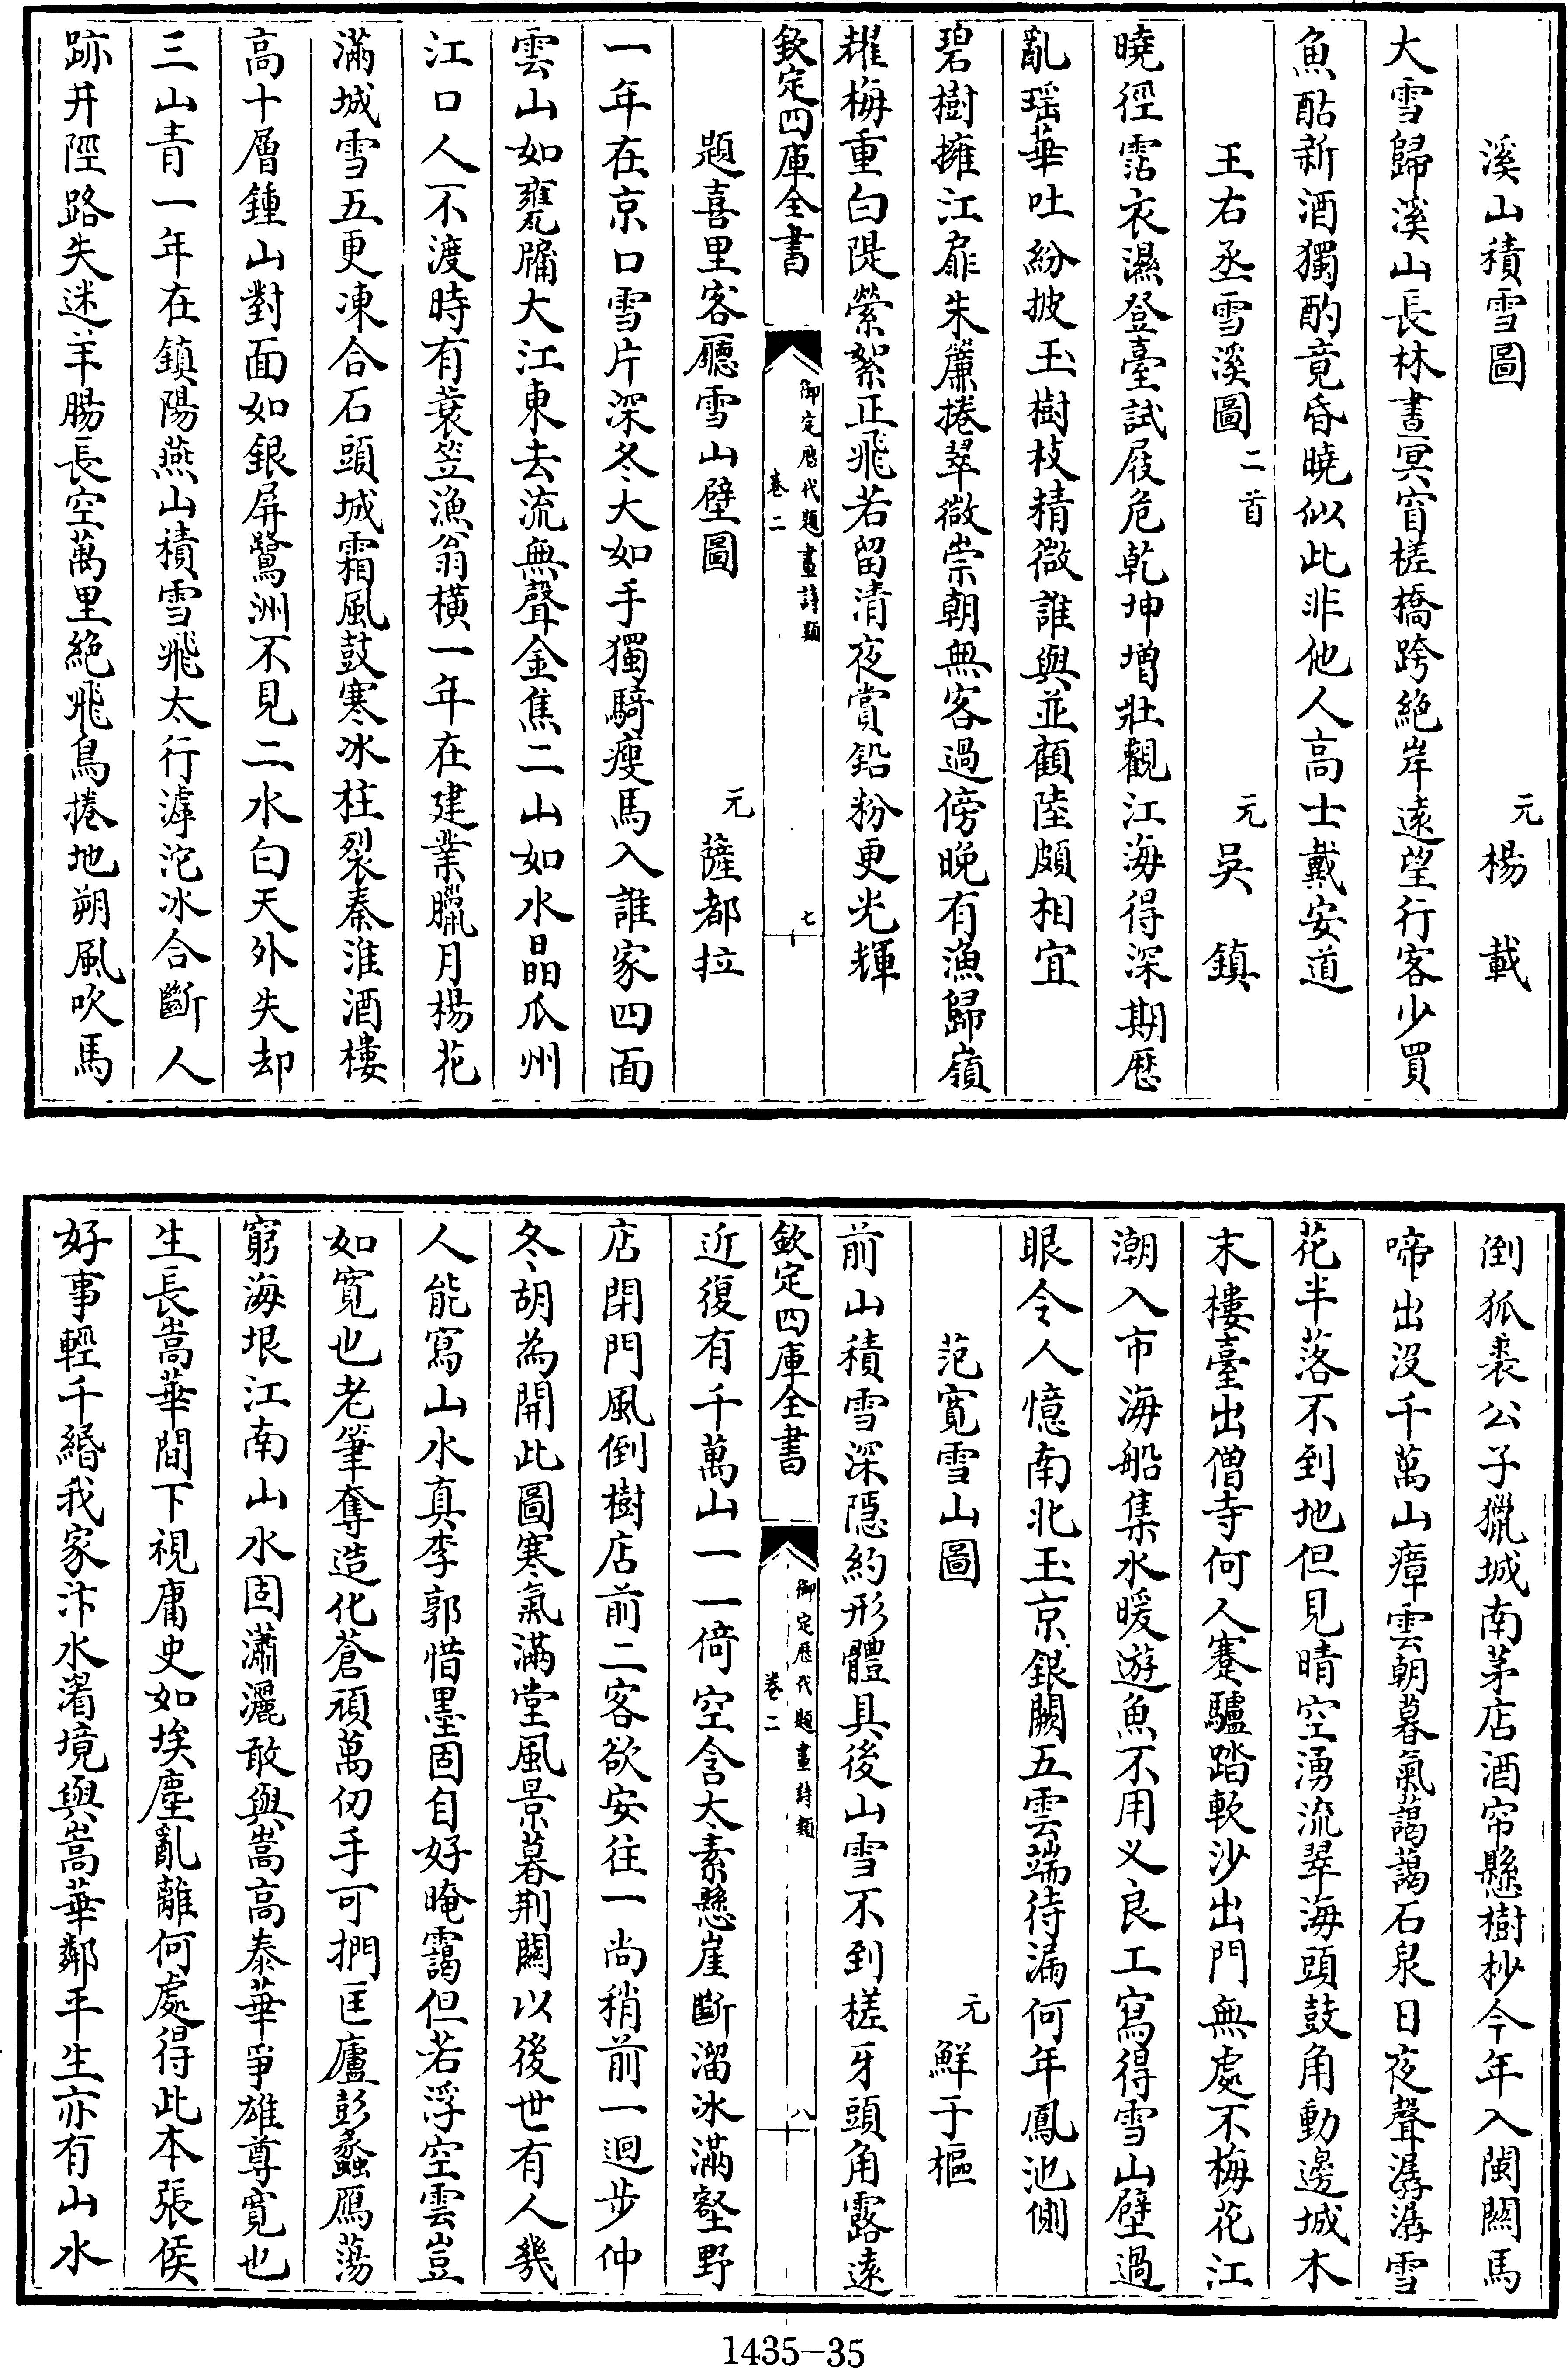 溪山積雪圖 元 楊載
大雪歸溪山長林晝冥窅槎橋跨絶岸遠望行客少買
魚酤新酒獨酌竟昏曉似此非他人高士戴安道
王右丞雪溪圖 二首 元 吳鎮
曉徑霑衣濕登臺試屐危乾坤增壯觀江海得深期歴
亂瑶華吐紛披玉樹枝精微誰與並顧陸頗相宜
碧樹擁江扉朱簾捲翠微崇朝無客過傍晚有漁歸嶺
耀梅重白隄縈絮正飛若留清夜賞鉛粉更光輝
欽定四庫全書 御定歴代題畫詩類 卷二 七
題喜里客廳雪山壁圖 元 薩都拉
一年在京口雪片深冬大如手獨騎瘦馬入誰家四面
雲山如甕牖大江東去流無聲金焦二山如水晶瓜州
江口人不渡時有蓑笠漁翁橫一年在建業臘月楊花
滿城雪五更凍合石頭城霜風鼓寒冰柱裂秦淮酒樓
高十層鍾山對面如銀屏鷺洲不見二水白天外失却
三山青一年在鎮陽燕山積雪飛太行滹沱冰合斷人
跡井陘路失迷羊腸長空萬里絶飛鳥捲地朔風吹馬
倒狐裘公子獵城南茅店酒帘懸樹杪今年入閩關馬
啼出没千萬山瘴雲朝暮氣藹藹石泉日夜聲潺潺雪
花半落不到地但見晴空湧流翠海頭鼓角動邊城木
末樓臺出僧寺何人蹇驢踏軟沙出門無處不梅花江
潮入市海船集水暖遊魚不用义良工寫得雪山壁過
眼令人憶南北玉京銀闕五雲端待漏何年鳳池側
范寛雪山圖 元 鮮于樞
前山積雪深隱約形體具後山雪不到槎牙頭角露遠
欽定四庫全書 御定歴代題畫詩類 卷二 八
近復有千萬山一一倚空含太素懸崖斷溜冰滿壑野
店閉門風倒樹店前二客欲安往一尚稍前一迴步仲
冬胡為開此圖寒氣滿堂風景暮荆關以後世有人幾
人能寫山水真李郭惜墨固自好晻靄但若浮空雲豈
如寛也老筆奪造化蒼頑萬仞手可捫匡廬彭蠡鴈蕩
窮海垠江南山水固瀟灑敢與嵩高泰華爭雄尊寛也
生長嵩華間下視庸史如埃塵亂離何處得此本張侯
好事輕千緡我家汴水濱境與嵩華鄰平生亦有山水
1435-35